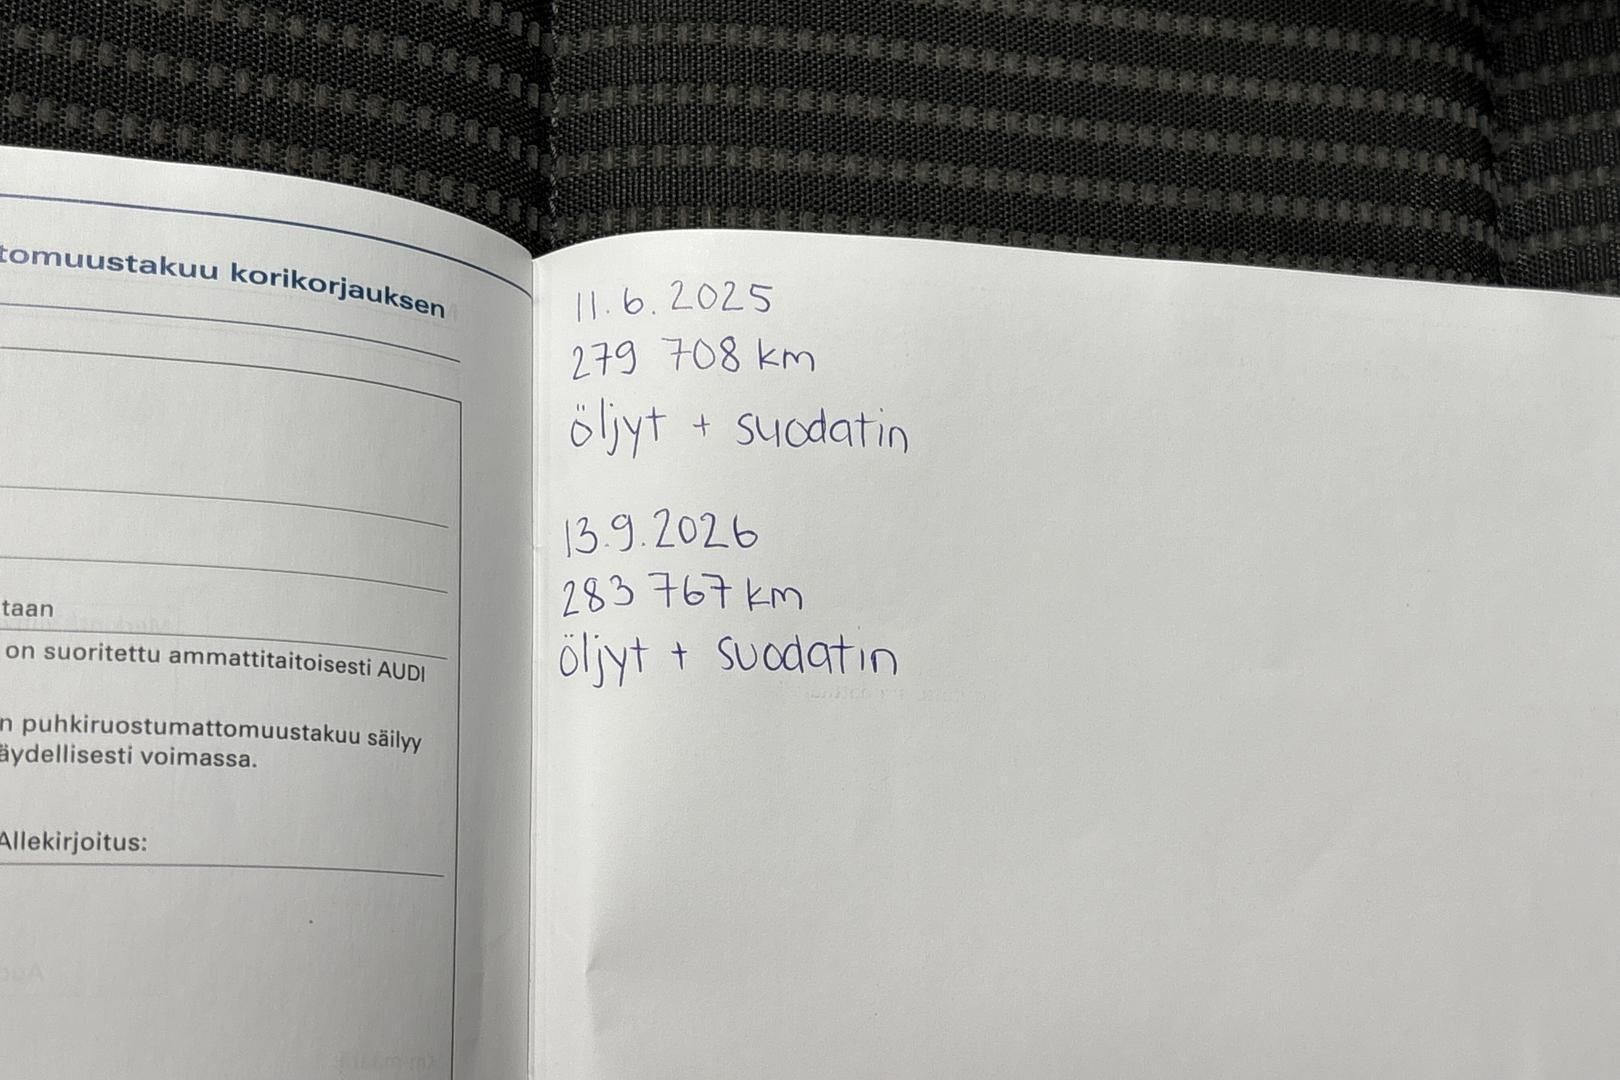 tomuustakuu korikorjauksen
taan
on suoritettu ammattitaitoisesti AUDI
n puhkiruostumattomuustakuu säilyy
äydellisesti voimassa.
Allekirjoitus:
11.6.2025
279 708 km
öljyt + suodatin
13.9.2026
283 767 km
öljyt + suodatin